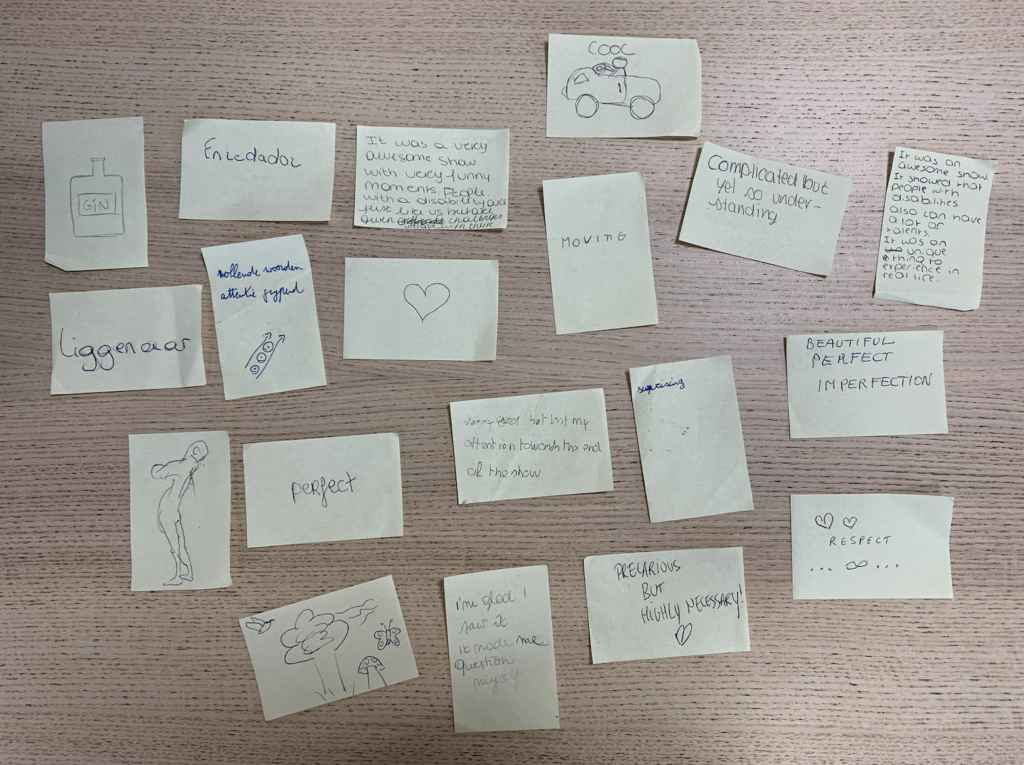 COOL
GIN
Enredador
It was a very
awesome show
with very funny
moments. People
with a disability are
just like us but
challenges
with their
MOVING
Complicated but
yet so under-
standing
It was an
awesome show.
It showed that
people with
disabilities
also can have
a lot of
talents.
It was an
unique
thing to
experience in
real life.
rollende woorden
attentie grypend
Liggenaar
BEAUTIFUL
PERFECT
IMPERFECTION
surprising
very good but lost my
attention towards the end
of the show
perfect
RESPECT
... ∞ ...
PRECARIOUS
BUT
HIGHLY NECESSARY!
i'm glad i
saw it
it made me
question
myself